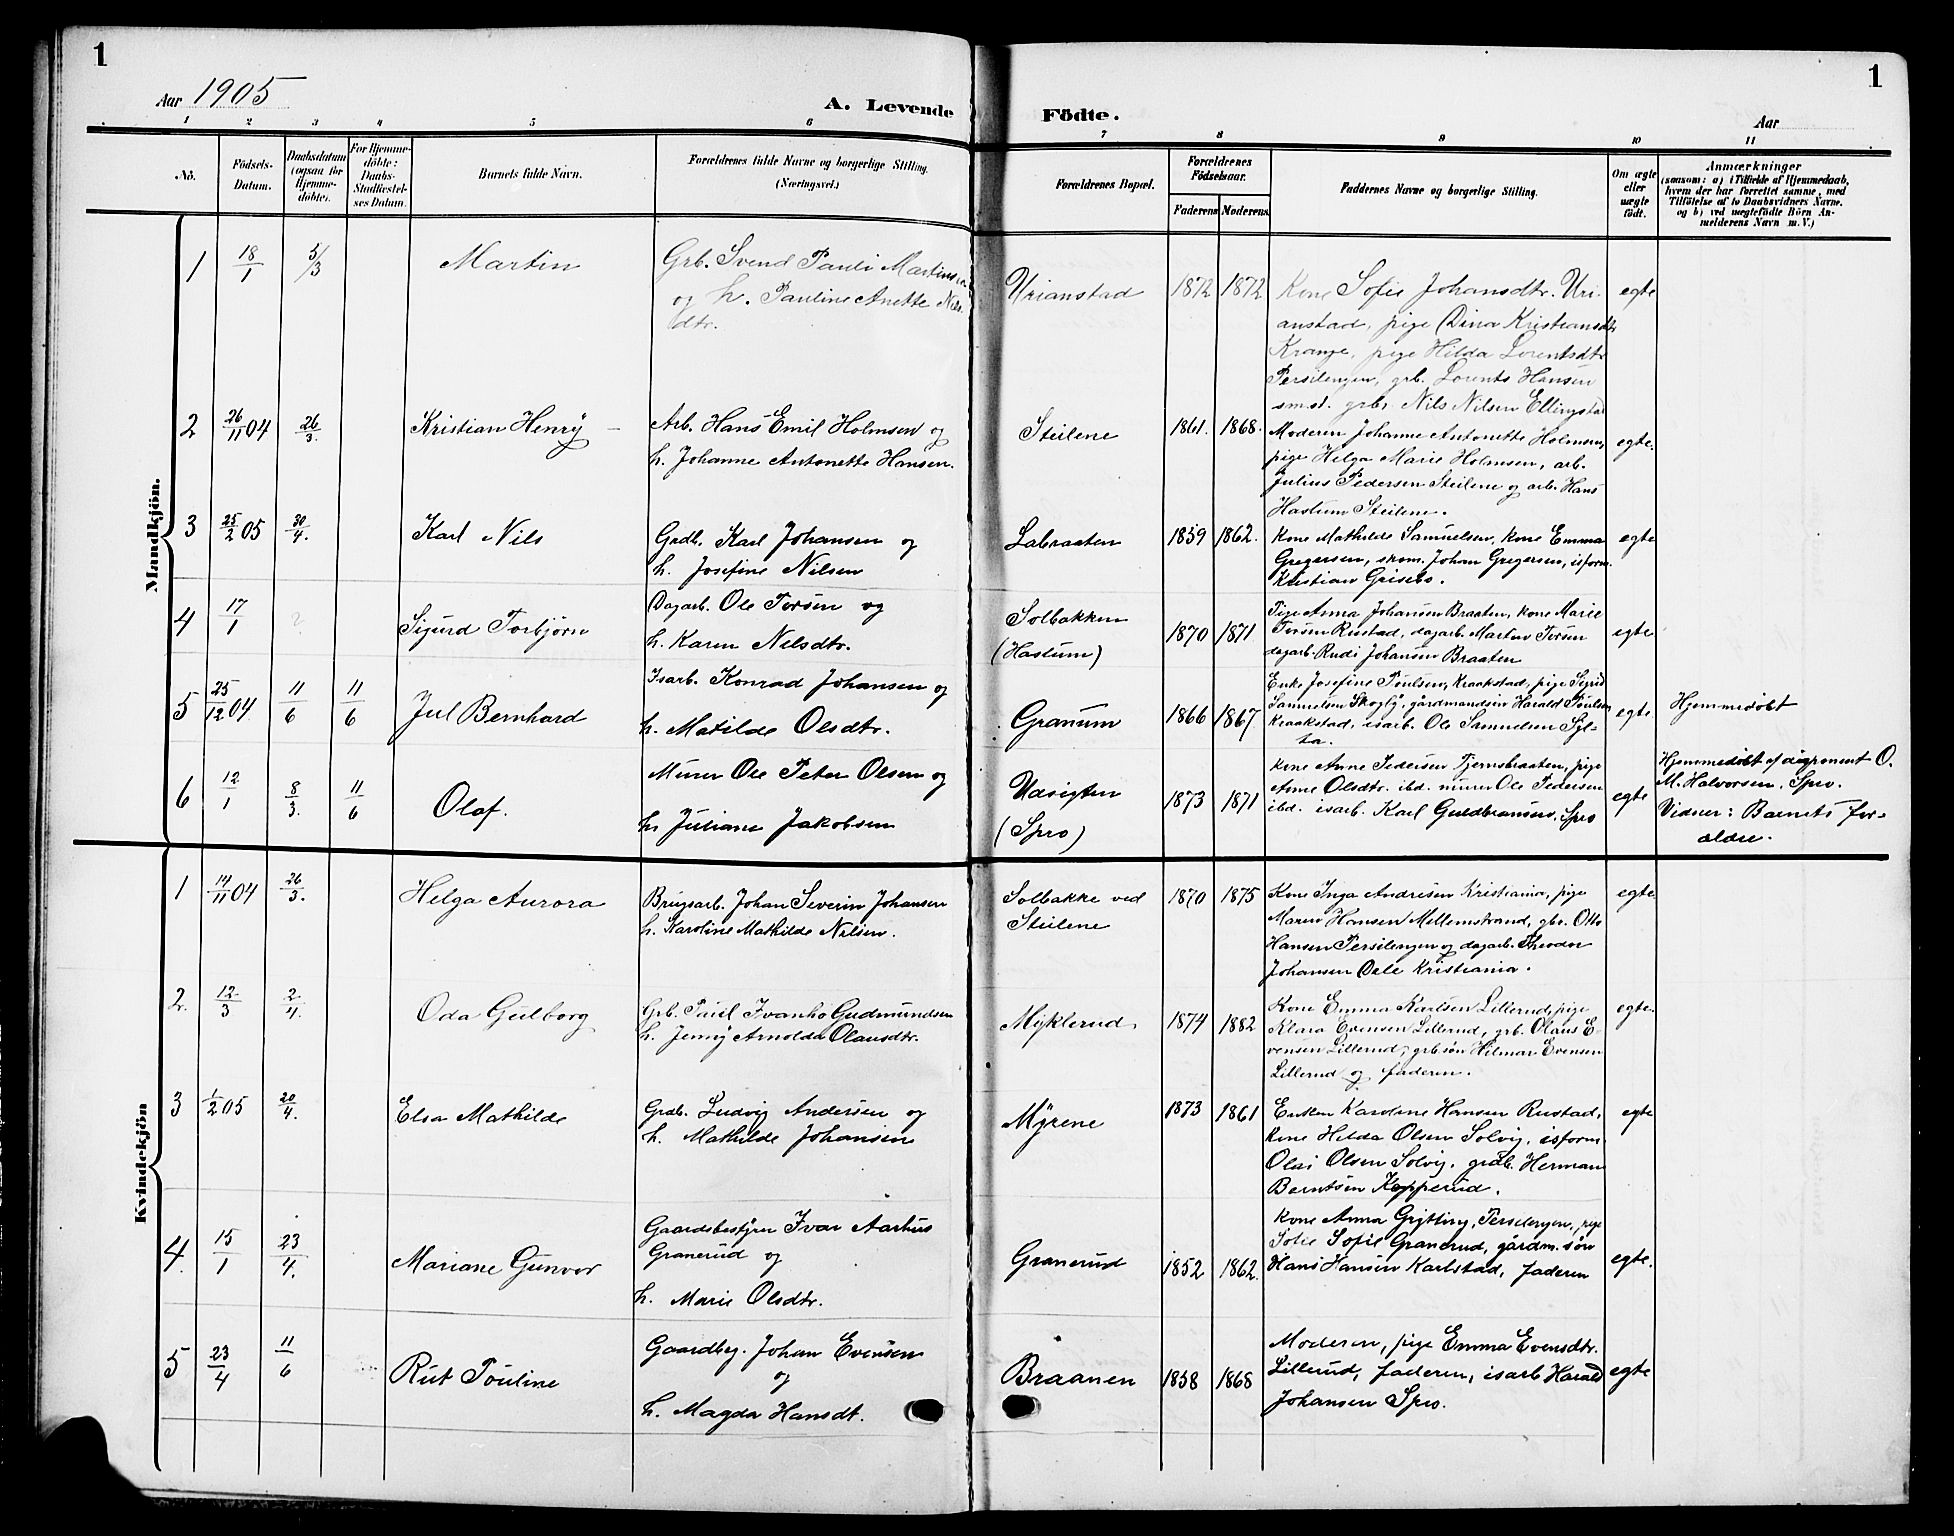 1
1
Aar 1905
A. Levende
Födte.
Aar
1 2 3 4 5 6 7 8 9 10 11
No.
Födsels-
Datum.
Daabsdatum
(ogsaa for
Hjemme-
döbte).
For Hjemme-
döbte:
Daabs-
Stadfæstel-
ses Datum.
Barnets fulde Navn.
Forældrenes fulde Navne og borgerlige Stilling.
(Næringsvei.)
Forældrenes Bopæl.
Forældrenes
Födselsaar.
Faderens Moderens.
Faddernes Navne og borgerlige Stilling.
Om ægte
eller
uægte
födt.
Anmærkninger
(saasom: a) i Tilfælde af Hjemmedaab,
hvem der har forrettet samme, med
Tilföielse af to Daabsvidners Navne.
og b) ved uægtefödte Börn An-
melderens Navn m. V.)
Mandkjön.
1 18/1 5/3 Martin
Grb. Svend Pauli Martinsen
og h. Pauline Anette Nils
dtr.
Urianstad 1872 1872
Kone Sofie Johansdtr. Uri-
anstad, pige Dina Kristiansdtr
Krange, pige Hilda Lorentsdtr
Persilengen, grb. Lorents Hansen
sm.st. grbr. Nils Nilsen Ellingstad
egte
2 26/11 04 26/3. Kristian Henry –
Arb. Hans Emil Holmsen og
h. Johanne Antonette Hansen.
Steilene 1861. 1868.
Moderen Johanne Antonette Holmsen,
pige Helga Marie Holmsen, arb.
Julius Pedersen Steilene og arb. Hans
Haslum Steilene.
egte.
3 25/2 05 30/4. Karl Nils
Grdb. Karl Johansen og
h. Josefine Nilsen
Labraaten 1859 1862.
Kone Mathilde Samuelsen, kone Emma
Gregersen, skom. Johan Gregersen, isform.
Kristian Grisebo.
egte
4 17/1 ? Sigurd Torbjørn
Dagarb. Ole Torsen og
h. Karen Nilsdtr.
Solbakken
(Haslum)
1870 1871
Pige Anna Johansen Braaten, kone Marie
Torsen Rustad, dagarb. Martin Torsen
dagarb. Rudi Johansen Braaten
egte
5 25/12 04 11/6 11/6 Jul Bernhard
Isarb. Konrad Johansen og
h. Matilde Olsdtr.
Granum 1866 1867
Enke Josefine Poulsen, Kraakstad, pige Sigrid
Samuelsen Skogly, gårdmandsøn Harald Poulsen
Kraakstad, isarb. Ole Samuelsen Syl-
ta.
egte.
Hjemmedøbt
6 12/1 8/3. 11/6 Olaf.
Murer Ole Peter Olsen og
h. Juliane Jakobsen
Udsigten
(Spro)
1873 1871
Kone Anne Pedersen Tjernsbraaten, pige
Anne Olsdtr. ibd. murer Ole Pedersen
ibd. isarb. Karl Guldbransen, Spro
egte
Hjemmedøbt af O.
M. Halvorsen, Spro.
Vidner: Barnets for-
ældre.
Kvindekjön
1 14/11 04 26/3. Helga Aurora
Brugsarb. Johan Severin Johansen
h. Karoline Mathilde Nilsen.
Solbakke ved
Steilene
1870 1875
Kone Inga Andresen Kristiania, pige
Maren Hansen Mellemstrand, gbr. Otto
Hansen Persilengen og dagarb. Theodor
Johansen Oslo Kristiania.
egte.
2. 12/3 2/4. Oda Gulborg
Grb. Paul Ivanho Gudmundsen
h. Jenny Arnolda Olausdtr.
Myklerud, 1874 1882
Kone Emma Karlsen Lillerud, pige
Klara Evensen Lillerud, grb. Olaus E-
vensen Lillerud, grb.søn Hilmar Evensen
Lillerud og faderen.
egte.
3 1/2 05 20/4. Elsa Mathilde
Grdb. Ludvig Andersen og
h. Mathilde Johansen
Myrene 1873 1861
Enken Karoline Hansen Rustad,
kone Hilda Olsen Solvig, isform.
Olai Olsen Solvig, grdb. Herman
Berntsen Kopperud.
egte
4. 15/1 23/4. Mariane Gunvor
Gaardsbestyrer Ivar Aarhus
Granerud og
h. Marie Olsdtr.
Granerud 1852 1862.
Kone Anna Grytting, Persilengen, pige
Sofie Sofie Granerud, gårdm. søn
Hans Hansen Karlstad, faderen
egte.
5 23/4 11/6 Rut Pouline
Gaardbg. Johan Evensen
og
h. Magda Hansdt.
Braanen 1858 1868
Moderen, pige Emma Evensdtr.
Lillerud, faderen, isarb Harald
Johansen Spro.
egte